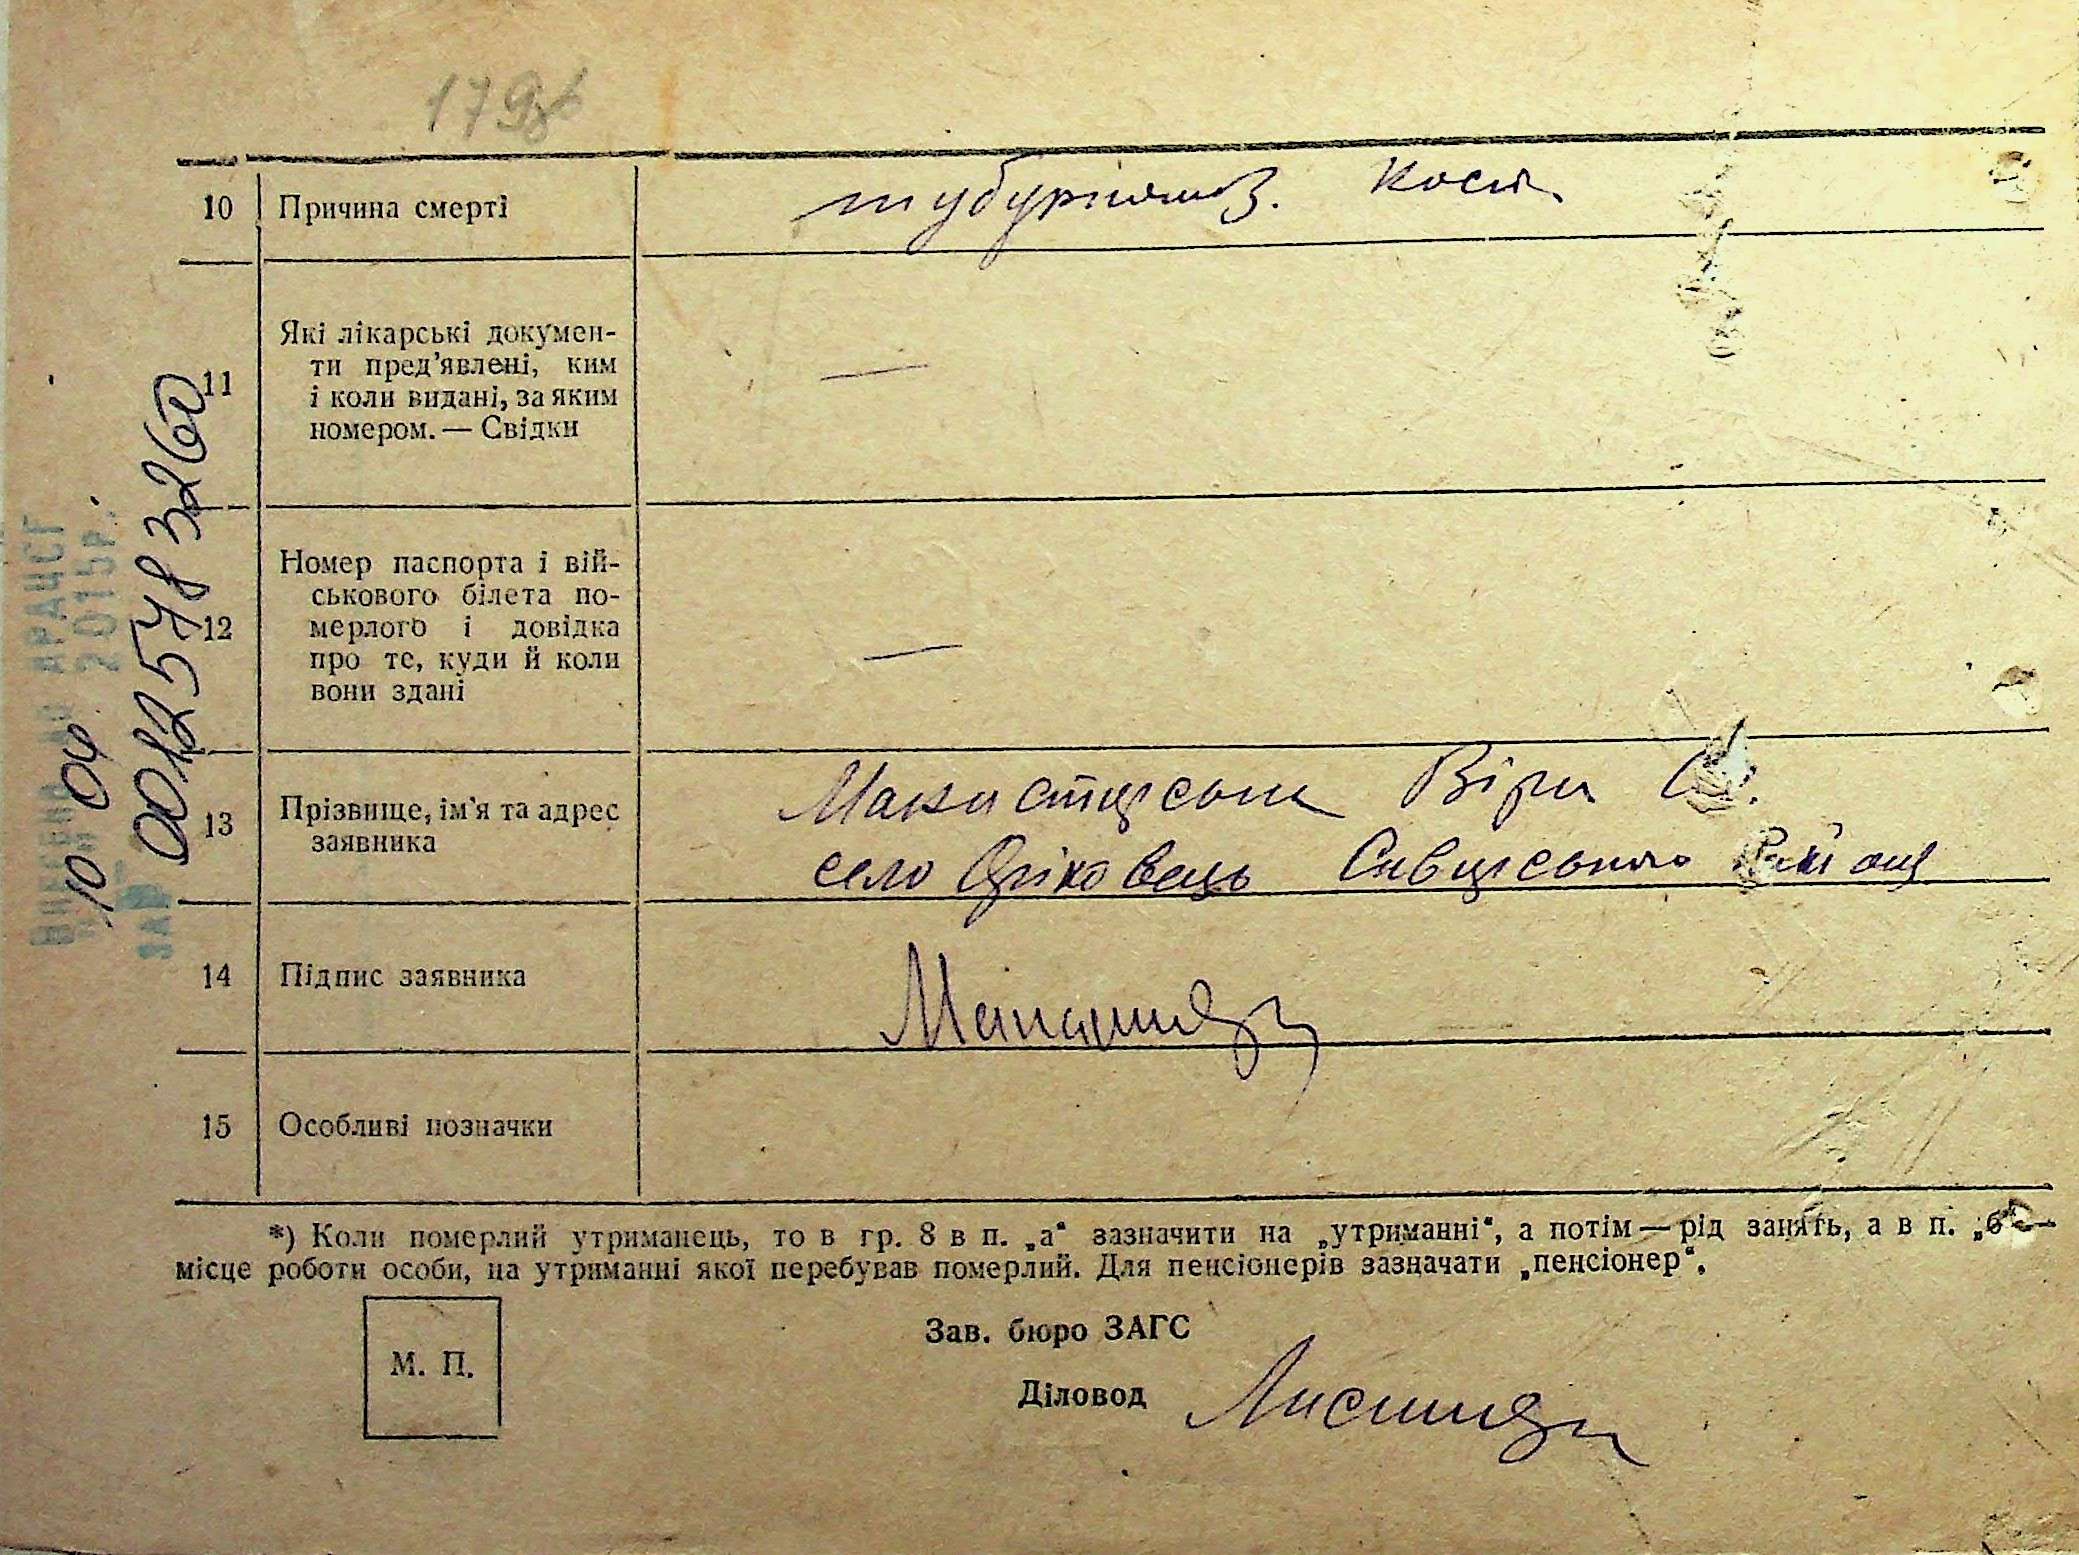 179
10 Причина смерті тубуркльоз. Костя
11 Які лікарські докумен-
ти пред’явлені, ким —
і коли видані, за яким
номером. — Свідки
12 Номер паспорта і вій-
ськового білета по-
мерлого і довідка —
про те, куди й коли
вони здані
13 Прізвище, ім’я та адрес Віри
заявника село Оріховець району
14 Підпис заявника
15 Особливі позначки
*) Коли померлий утриманець, то в гр. 8 в п. „а“ зазначити на „утриманні“, а потім — рід занять, а в п. „б“ —
місце роботи особи, на утриманні якої перебував померлий. Для пенсіонерів зазначати „пенсіонер“.
М. П.
Зав. бюро ЗАГС
Діловод
ДРАЦСГ
10 04 2015р.
00125783260